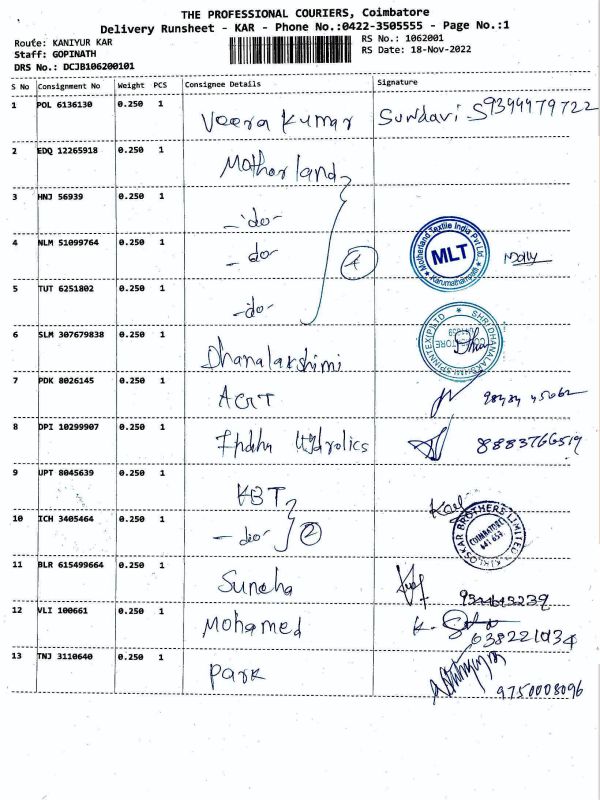 THE PROFESSIONAL COURIERS, Coimbatore
Delivery Runsheet - KAR - Phone No.:0422-3505555 - Page No.:1
Route: KANIYUR KAR
RS No.: 1062001
Staff: GOPINATH
RS Date: 18-Nov-2022
DRS No.: DCJB106200101
S No Consignment No Weight PCS Consignee Details Signature
1 POL 6136130 0.250 1 Veera Kumar Sundavi
2 EDQ 12265918 0.250 1 Motherland
3 HNJ 56939 0.250 1 -do-
4 NLM 51099764 0.250 1 -do- 4
Motherland Textile India Pvt Ltd.
MLT
Karumathampatti
5 TUT 6251802 0.250 1 -do-
6 SLM 307679838 0.250 1 Dhanalakshimi
SHRI DHANALAKSHMI SPINNTEX(P)LTD
7 PDK 8026145 0.250 1 AGT
8 DPI 10299907 0.250 1 8883766519
9 UPT 8045639 0.250 1 KBT
10 ICH 3405464 0.250 1 -do- 2
KIRLOSKAR BROTHERS LIMITED
COIMBATORE
641 659
11 BLR 615499664 0.250 1
12 VLI 100661 0.250 1 Mohamed
13 TNJ 3110640 0.250 1 Park 9750008096